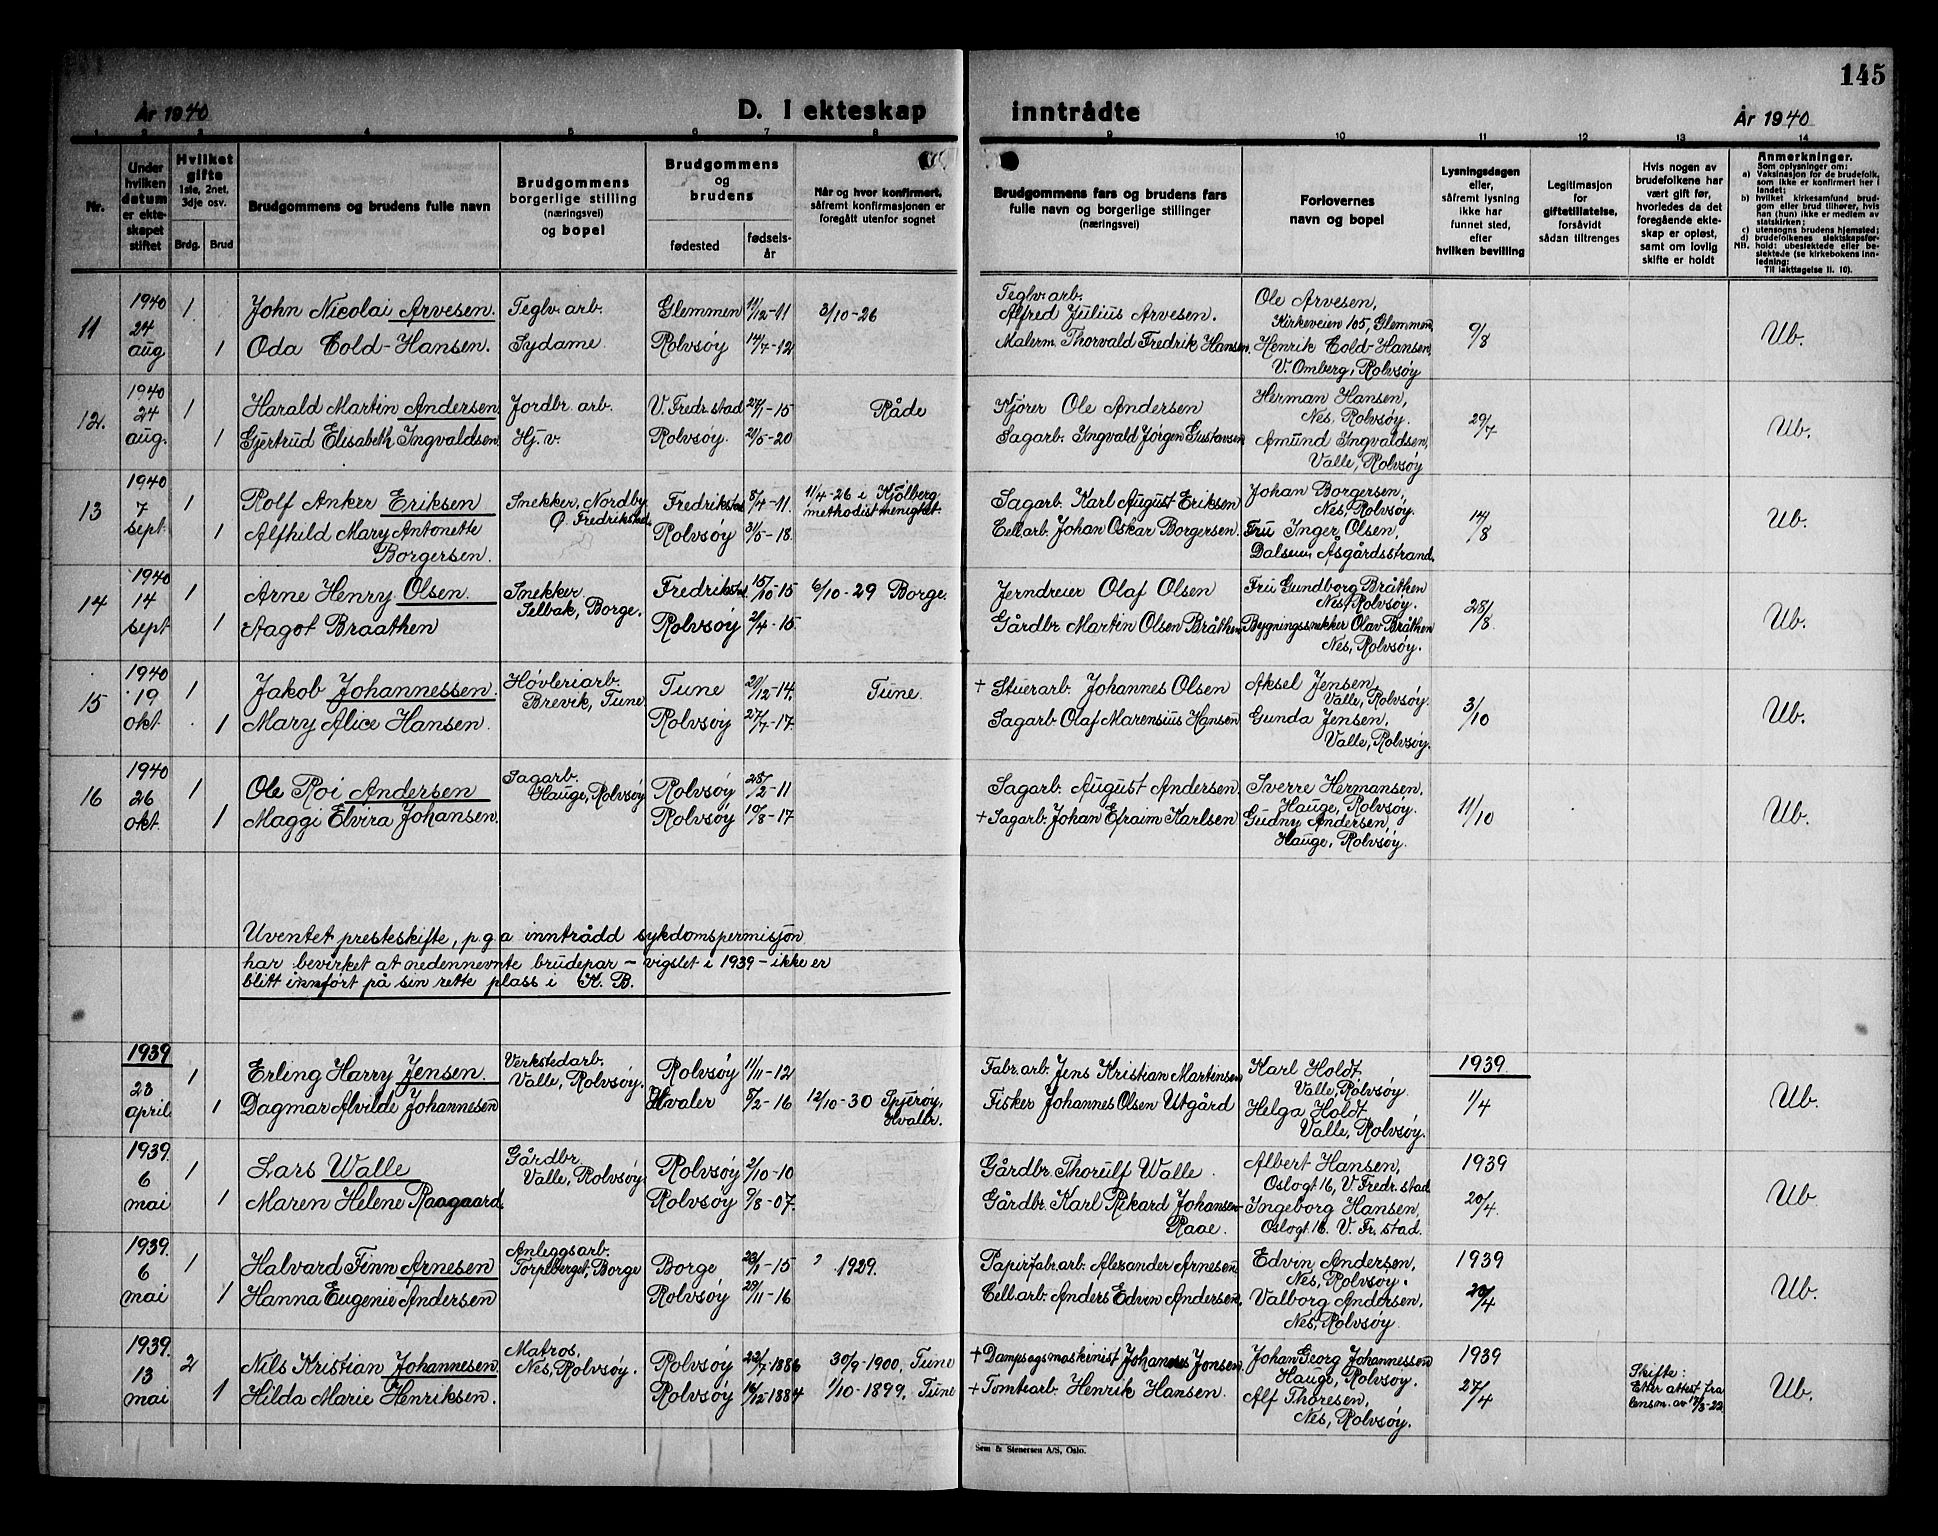 145
År 1940
D. I ekteskap inntrådte
År 1940
1 2 3 4 5 6 7 8 9 10 11 12 13 14
Nr.
Under hvilken datum er ekteskapet stiftet
Hvilket gifte 1ste, 2net, 3dje osv.
Brdg. Brud
Brudgommens og brudens fulle navn
Brudgommens borgerlige stilling (næringsvei) og bopel
Brudgommens og brudens
fødested
fødselsår
Når og hvor konfirmert, såfremt konfirmasjonen er foregått utenfor sognet
Brudgommens fars og brudens fars fulle navn og borgerlige stillinger (næringsvei)
Forlovernes navn og bopel
Lysningsdagen eller, såfremt lysning ikke har funnet sted, efter hvilken bevilling
Legitimasjon for giftetillatelse, forsåvidt sådan tiltrenges
Hvis nogen av brudefolkene har vært gift før, hvorledes da det foregående ekteskap er opløst, samt om lovlig skifte er holdt
Anmerkninger.
Som oplysninger om:
a) Vaksinasjon for de brudefolk, som ikke er konfirmert her i landet;
b) hvilket kirkesamfund brudgom eller brud tilhører, hvis han (hun) ikke er medlem av statskirken;
c) utensogns brudens hjemsted;
d) brudefolkenes slektskapsforhold: ubeslektede eller beslektede (se kirkebokens innledning;
NB.
Til iakttagelse II. 10).
11 1940 24 aug
1 John Nicolai Arvesen. Teglv. arb. Glemmen 11/12-11 3/10-26 Teglv. arb. Alfred Julius Arvesen. Ole Arvesen, Kirkeveien 105, Glemmen 9/8 Ub.
1 Oda Cold-Hansen. Sydame. Rolvsøy 14/7-12 Malerm. Thorvald Fredrik Hansen. Henrik Cold-Hansen, V. Omberg, Rolvsøy
12. 1940 24 aug.
1 Harald Martin Andersen Jordbr. arb. V. Fredr.stad 27/1-15 Råde Kjører Ole Andersen Herman Hansen, Nes, Rolvsøy. 29/7 Ub.
1 Gjertrud Elisabeth Ingvaldsen. Hj. v. Rolvsøy. 21/5-20 Sagarb. Ingvald Jørgen Gustavsen Amund Ingvaldsen, Valle, Rolvsøy
13 1940 7 sept.
1 Rolf Anker Eriksen Snekker, Nordby Ø. Fredrikstad. Fredrikstad 8/4-11. 11/4-26 i Kjølberg methodistmenighet. Sagarb. Karl August Eriksen Johan Borgersen, Nes, Rolvsøy. 14/8 Ub.
1 Alfhild Mary Antonette Borgersen. Rolvsøy 31/5-18. Cell.arb. Johan Oskar Borgersen. Fru Inger Olsen, Åsgårdsstrand.
14 1940 14 sept
1 Arne Henry Olsen. Snekker Selbak, Borge. Fredrikstad. 15/10-15 6/10-29 Borge. Jerndreier Olaf Olsen Fru Gundborg Bråthen Nes, Rolvsøy. 28/8 Ub.
1 Aagot Braathen Rolvsøy 2/4-15. Gårdbr. Martin Olsen Bråthen Bygningssnekker Olav Bråthen Nes, Rolvsøy.
15 1940 19 okt
1 Jakob Johannessen. Høvleriarb. Brevik, Tune Tune 20/12-14. Tune. + Stuerarb. Johannes Olsen Aksel Jensen, Valle, Rolvsøy. 3/10 Ub.
1 Mary Alice Hansen. Rolvsøy 27/7-17. Sagarb. Olaf Marensius Hansen Gunda Jensen, Valle, Rolvsøy.
16 1940 26 okt.
1 Ole Roi Andersen Sagarb. Hauge, Rolvsøy Rolvsøy 28/2-11 Sagarb. August Andersen. Sverre Hermansen. Hauge, Rolvsøy. 11/10 Ub.
1 Maggi Elvira Johansen. Rolvsøy 19/8-17 + Sagarb. Johan Efraim Karlsen Gudny Andersen, Hauge, Rolvsøy.
Uventet presteskifte, p.g.a inntrådd sykdomspermisjon
har bevirket at nedennevnte brudepar – vigslet i 1939 – ikke er
blitt innført på sin rette plass i K. B.
1939 23 april.
1 Erling Harry Jensen. Verkstedarb. Valle, Rolvsøy. Rolvsøy 1/11-12 Fabr. arb. Jens Kristian Martensen Karl Holdt Valle, Rolvsøy. 1939 1/4 Ub.
1 Dagmar Alvilde Johannesen Hvaler 8/2-16 12/10-30 Spjerøy, Hvaler. Fisker Johannes Olsen Utgård Helga Holdt Valle, Rolvsøy.
1939. 6 mai
1 Lars Walle Gårdbr. Valle, Rolvsøy. Rolvsøy 2/10-10 Gårdbr. Thorulf Walle. Albert Hansen, Oslogt 16, V. Fredr. stad 1939 20/4 Ub
1 Maren Helene Raagaard. Rolvsøy 9/8-07. Gårdbr. Karl Rikard Johansen-Raae. Ingeborg Hansen, Oslogt 16. V. Fr. stad.
1939. 6 mai
1 Halvard Finn Arnesen Anleggsarb. Torpeberget, Borge Borge 23/1-15 ? 1929. Papirfabr. arb. Alexander Arnesen Edvin Andersen, Nes, Rolvsøy. 1939 20/4 Ub.
1 Hanna Eugenie Andersen Rolvsøy 29/11-16 Cell. arb. Anders Edvin Andersen. Valborg Andersen, Nes, Rolvsøy.
1939. 13 mai
2 Nils Kristian Johannesen Matros, Nes, Rolvsøy. Rolvsøy 23/7-1886 30/9-1900, Tune + Dampsagsmaskinist Johannes Jonsen. Johan Georg Johannessen Hauge, Rolvsøy. 1939 27/4 Skifte: Etter attest fra lensm. av 17/3-22 Ub.
1 Hilda Marie Henriksen. Rolvsøy 16/12-1884 1/10-1899, Tune + Tomtearb. Henrik Hansen. Alf Thoresen, Nes, Rolvsøy.
Sem & Stenersen A/S, Oslo.